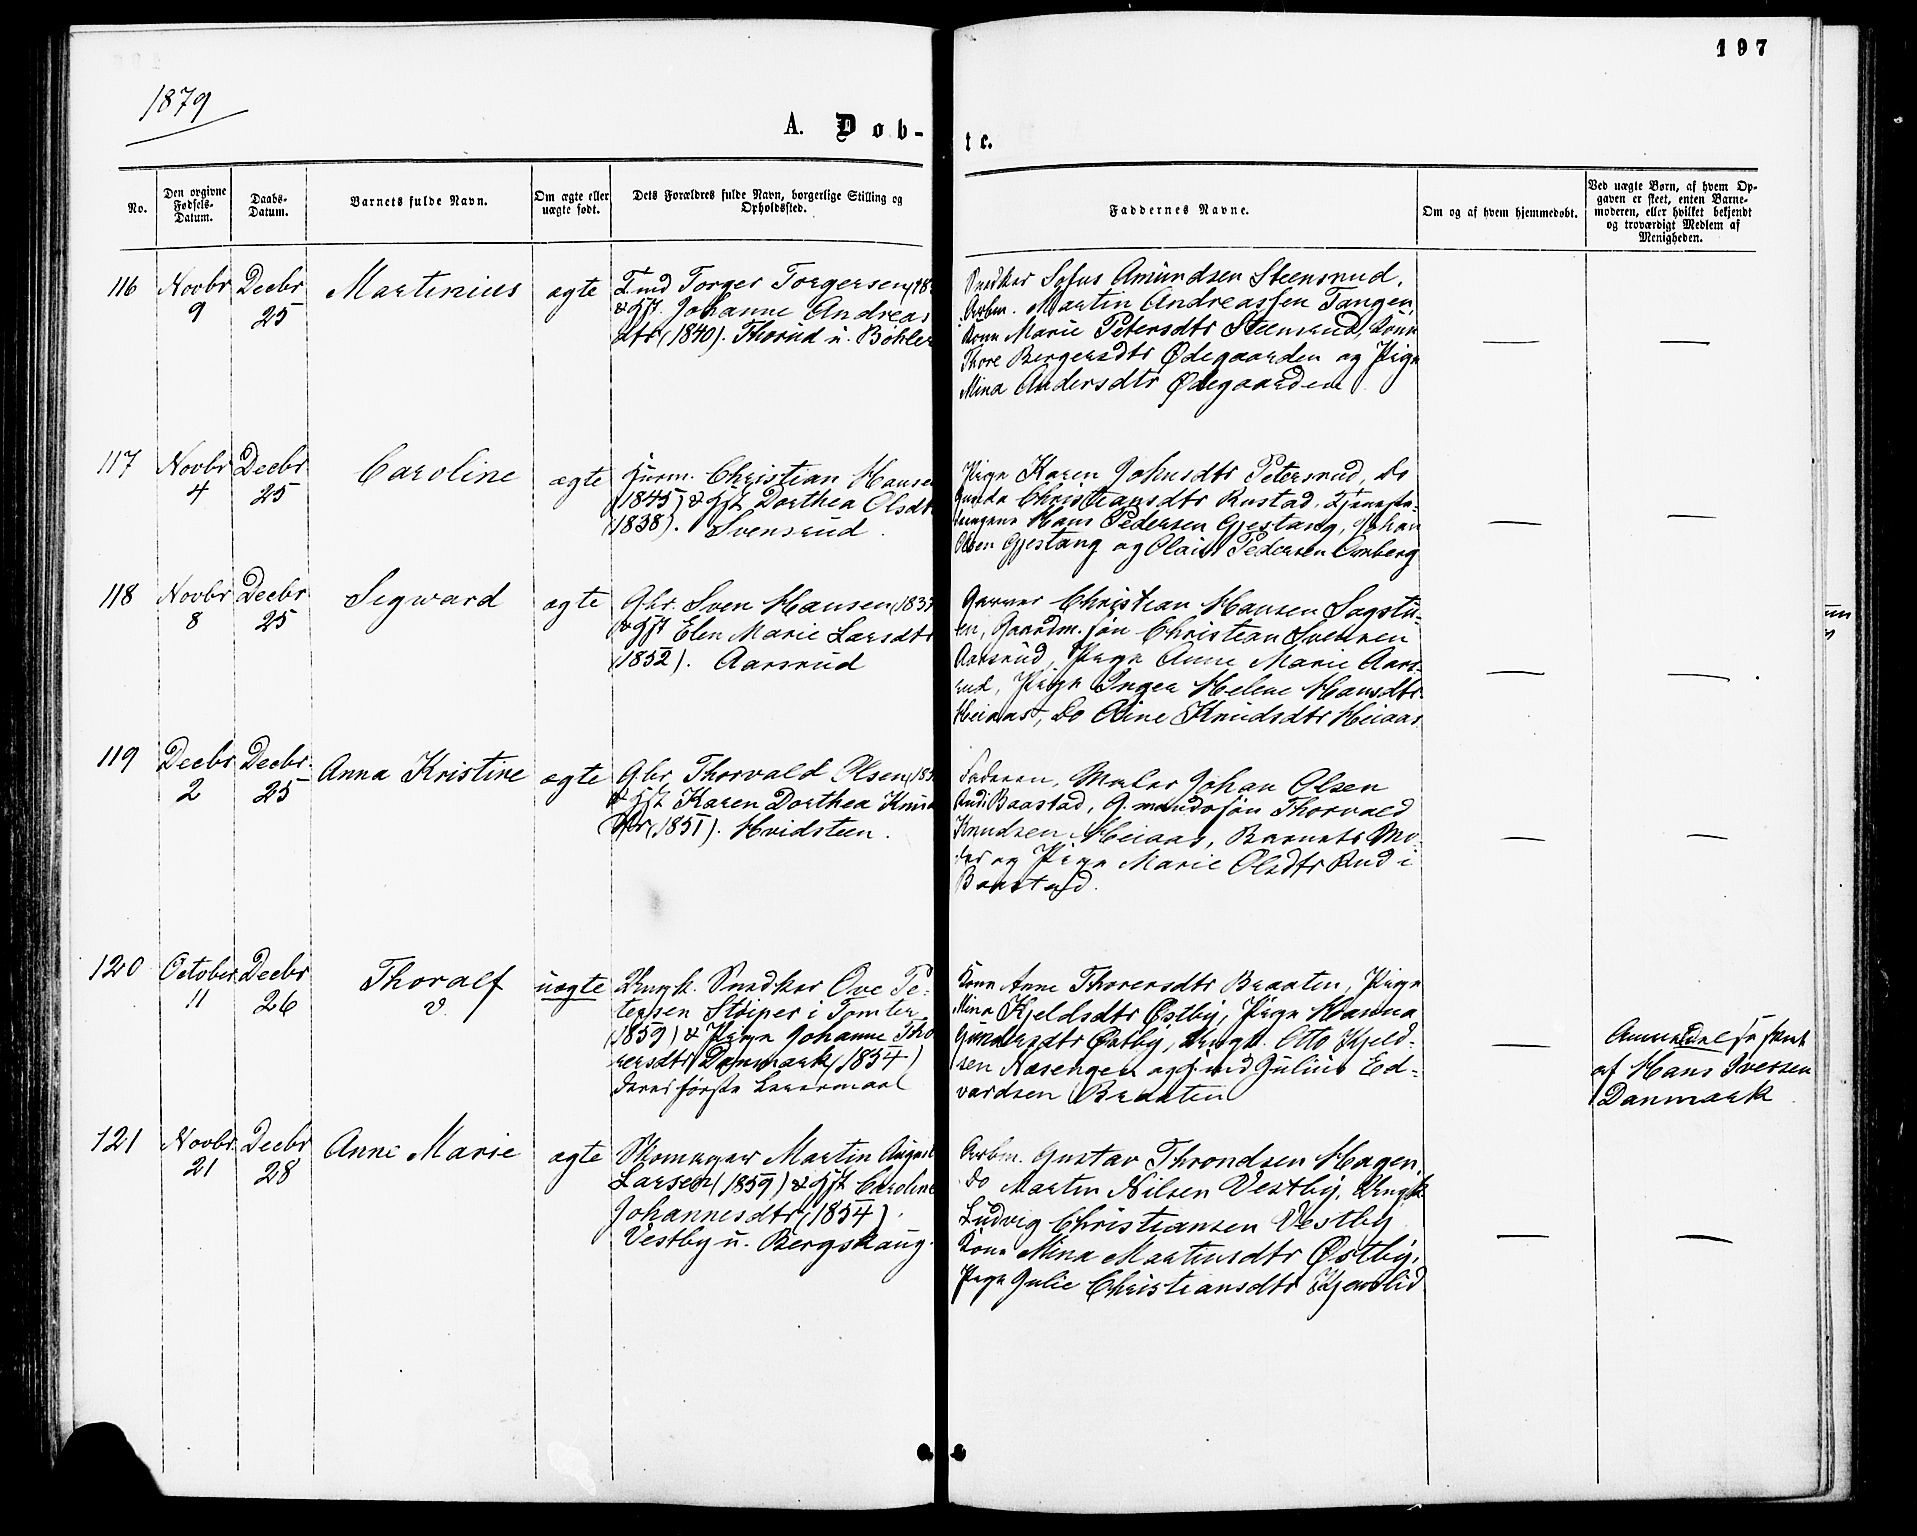 197
1879
A. Døb-
te.
No.
Den opgivne
Fødsels-
Datum.
Daabs-
Datum.
Barnets fulde Navn.
Om ægte eller
uægte født.
Dets Forældres fulde Navn, borgerlige Stilling og
Opholdssted.
Faddernes Navne.
Om og af hvem hjemmedøbt.
Ved uægte Børn, af hvem Op-
gaven er skeet, enten Barne-
moderen, eller hvilket bekjendt
og troværdigt Medlem af
Menigheden.
116
Novbr
9
Decbr
25
Martinius
ægte
Torger Torgersen (18
& Hst. Johanne Andreas
dtr (1840). Thorud u. Bøhler
Snedker Sofus Amundsen Steensrud,
Arbm. Martin Andreassen Tangen,
Kone Marie Petersdtr Steensrud, Kone
Thore Bergersdtr Ødegaarden og Pige
Mina Andersdtr Ødegaarden
117
Novbr
4
Decbr
25
Caroline
ægte
Christian Hansen
(1845) & Hst Dorthea Olsdtr
(1838). Svensrud.
Pige Karen Johnsdtr Petersrud, Do
Christiansdtr Rustad, Tjeneste-
drengene Hans Pedersen Gjestang, Johan
Olsen Gjestang og Olais Pedersen
118
Novbr
8
Decbr
25
Segward
ægte
Gbr. Sven Hansen (1837
& Hst Elen Marie Larsdtr
(1852). Aarsrud
Garver Christian Hansen Sagstu-
en, Gaardm. søn Christian Svensen
Aarsrud, Pige Anne Marie Aars-
rud, Pige Inger Helene Hansdtr
Heiaas, Do Oline Knudsdtr Heiaas
119
Decbr
2
Decbr.
25
Anna Kristine
ægte
Gbr. Thorvald Olsen (18
& Hst Karen Dorthea Knuds
dtr (1851). Hvidsteen.
Faderen, Maler Johan Olsen
Rud i Baastad, G.mandssøn Thorvald
Knudsen Heiaas, Barnets Mo-
der og Pige Marie Olsdtr Rud i
Baastad.
120
October
11
Decbr
26
Thoralf
v.
uægte
Ungk. Snedker Ove Pe-
tersen Støiper i Tomter
(1859) & Pige Johanne Tho
rersdtr Danmark (1854)
deres første Leiermaal
Kone Anne Thorersdtr Braaten, Pige
Mina Kjeldsdtr Østby, Pige Hanna
Gundersdtr Østby, Ungk. Otto Kjeld-
sen Næsengen og Julius Ed-
vardsen Braaten
Anmeldelse skeet
af Hans Iversen
Danmark
121
Novbr.
21
Decbr
28
Anne Marie
ægte
Skomager Martin August
Larsen (1859) & Hst Caroline
Johannesdtr (1854).
Vestby u. Bergskaug.
Arbm. Gustav Throndsen Hagen,
do Martin Nilsen Vestby, Ungk.
Ludvig Christiansen Vestby
Kone Mina Martinsdtr Østby,
Pige Julie Christiansdtr